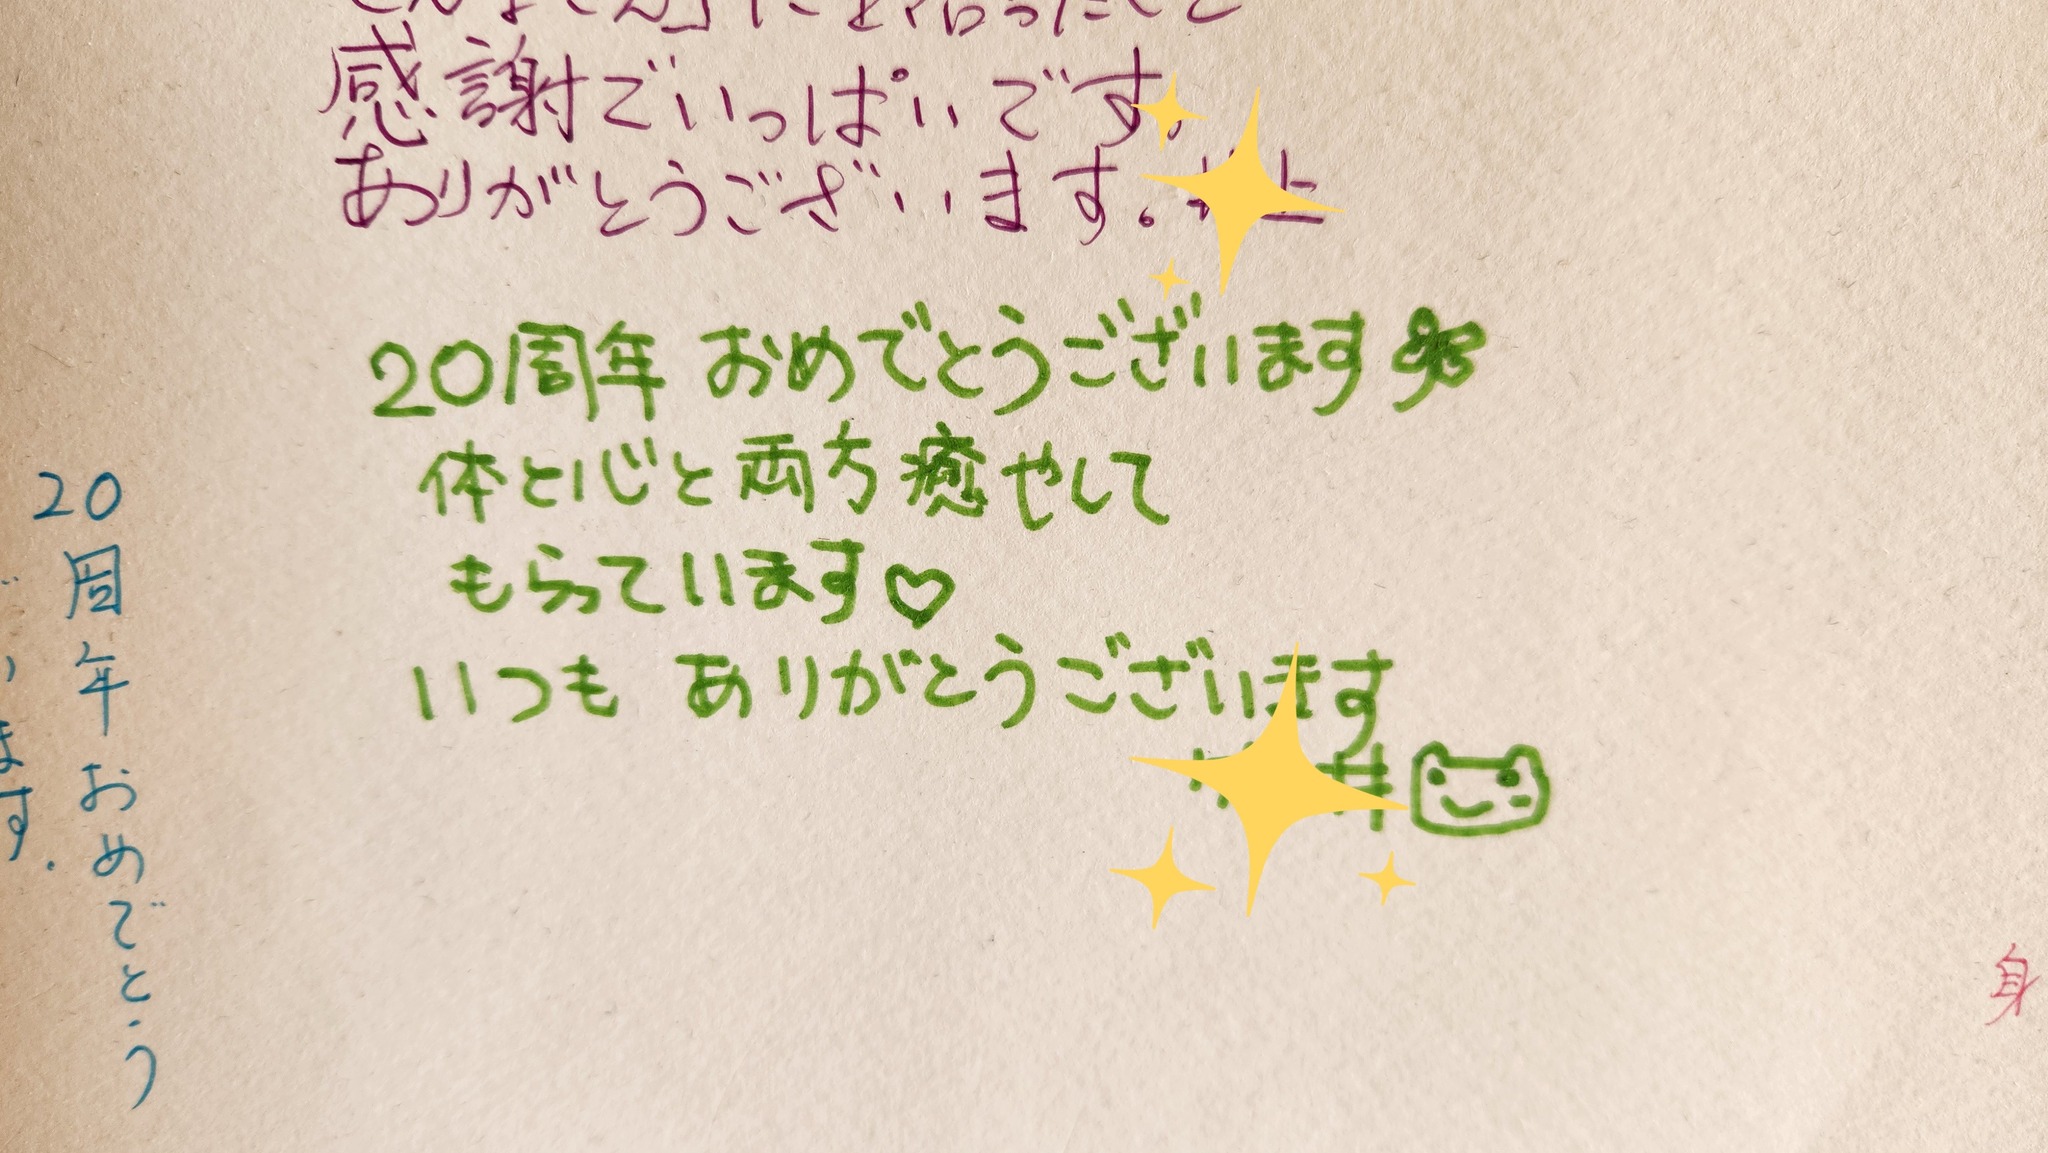 感謝でいっぱいです。
ありがとうございます。
20周年 おめでとうございます
体と心と両方癒やして
もらっています♡
いつも ありがとうございます
井
20周年おめでとう
ます.
身